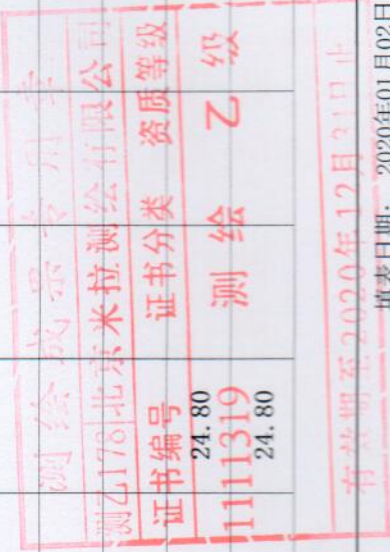 测绘成果专用章
测乙178|北京米拉测绘有限公司
证书编号 证书分类 资质等级
24.80
1111319 测绘 乙级
24.80
有效期至2020年12月31日止
填表日期: 2020年01月02日